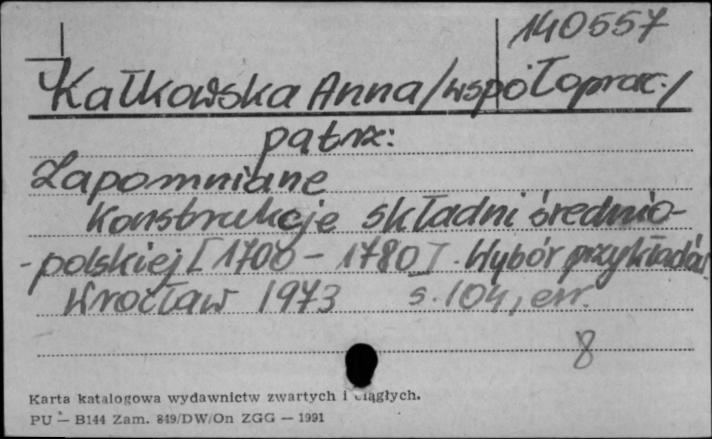 140557
Kałkowska Anna /współoprac./
patrz:
Zapomniane
konstrukcje składni średnio-
-polskiej [1700 - 1780]. Wybór przykładów
Wrocław 1973 s. 104, err.
8
Karta katalogowa wydawnictw zwartych i ciągłych.
PU — B144 Zam. 849/DW/On ZGG — 1991